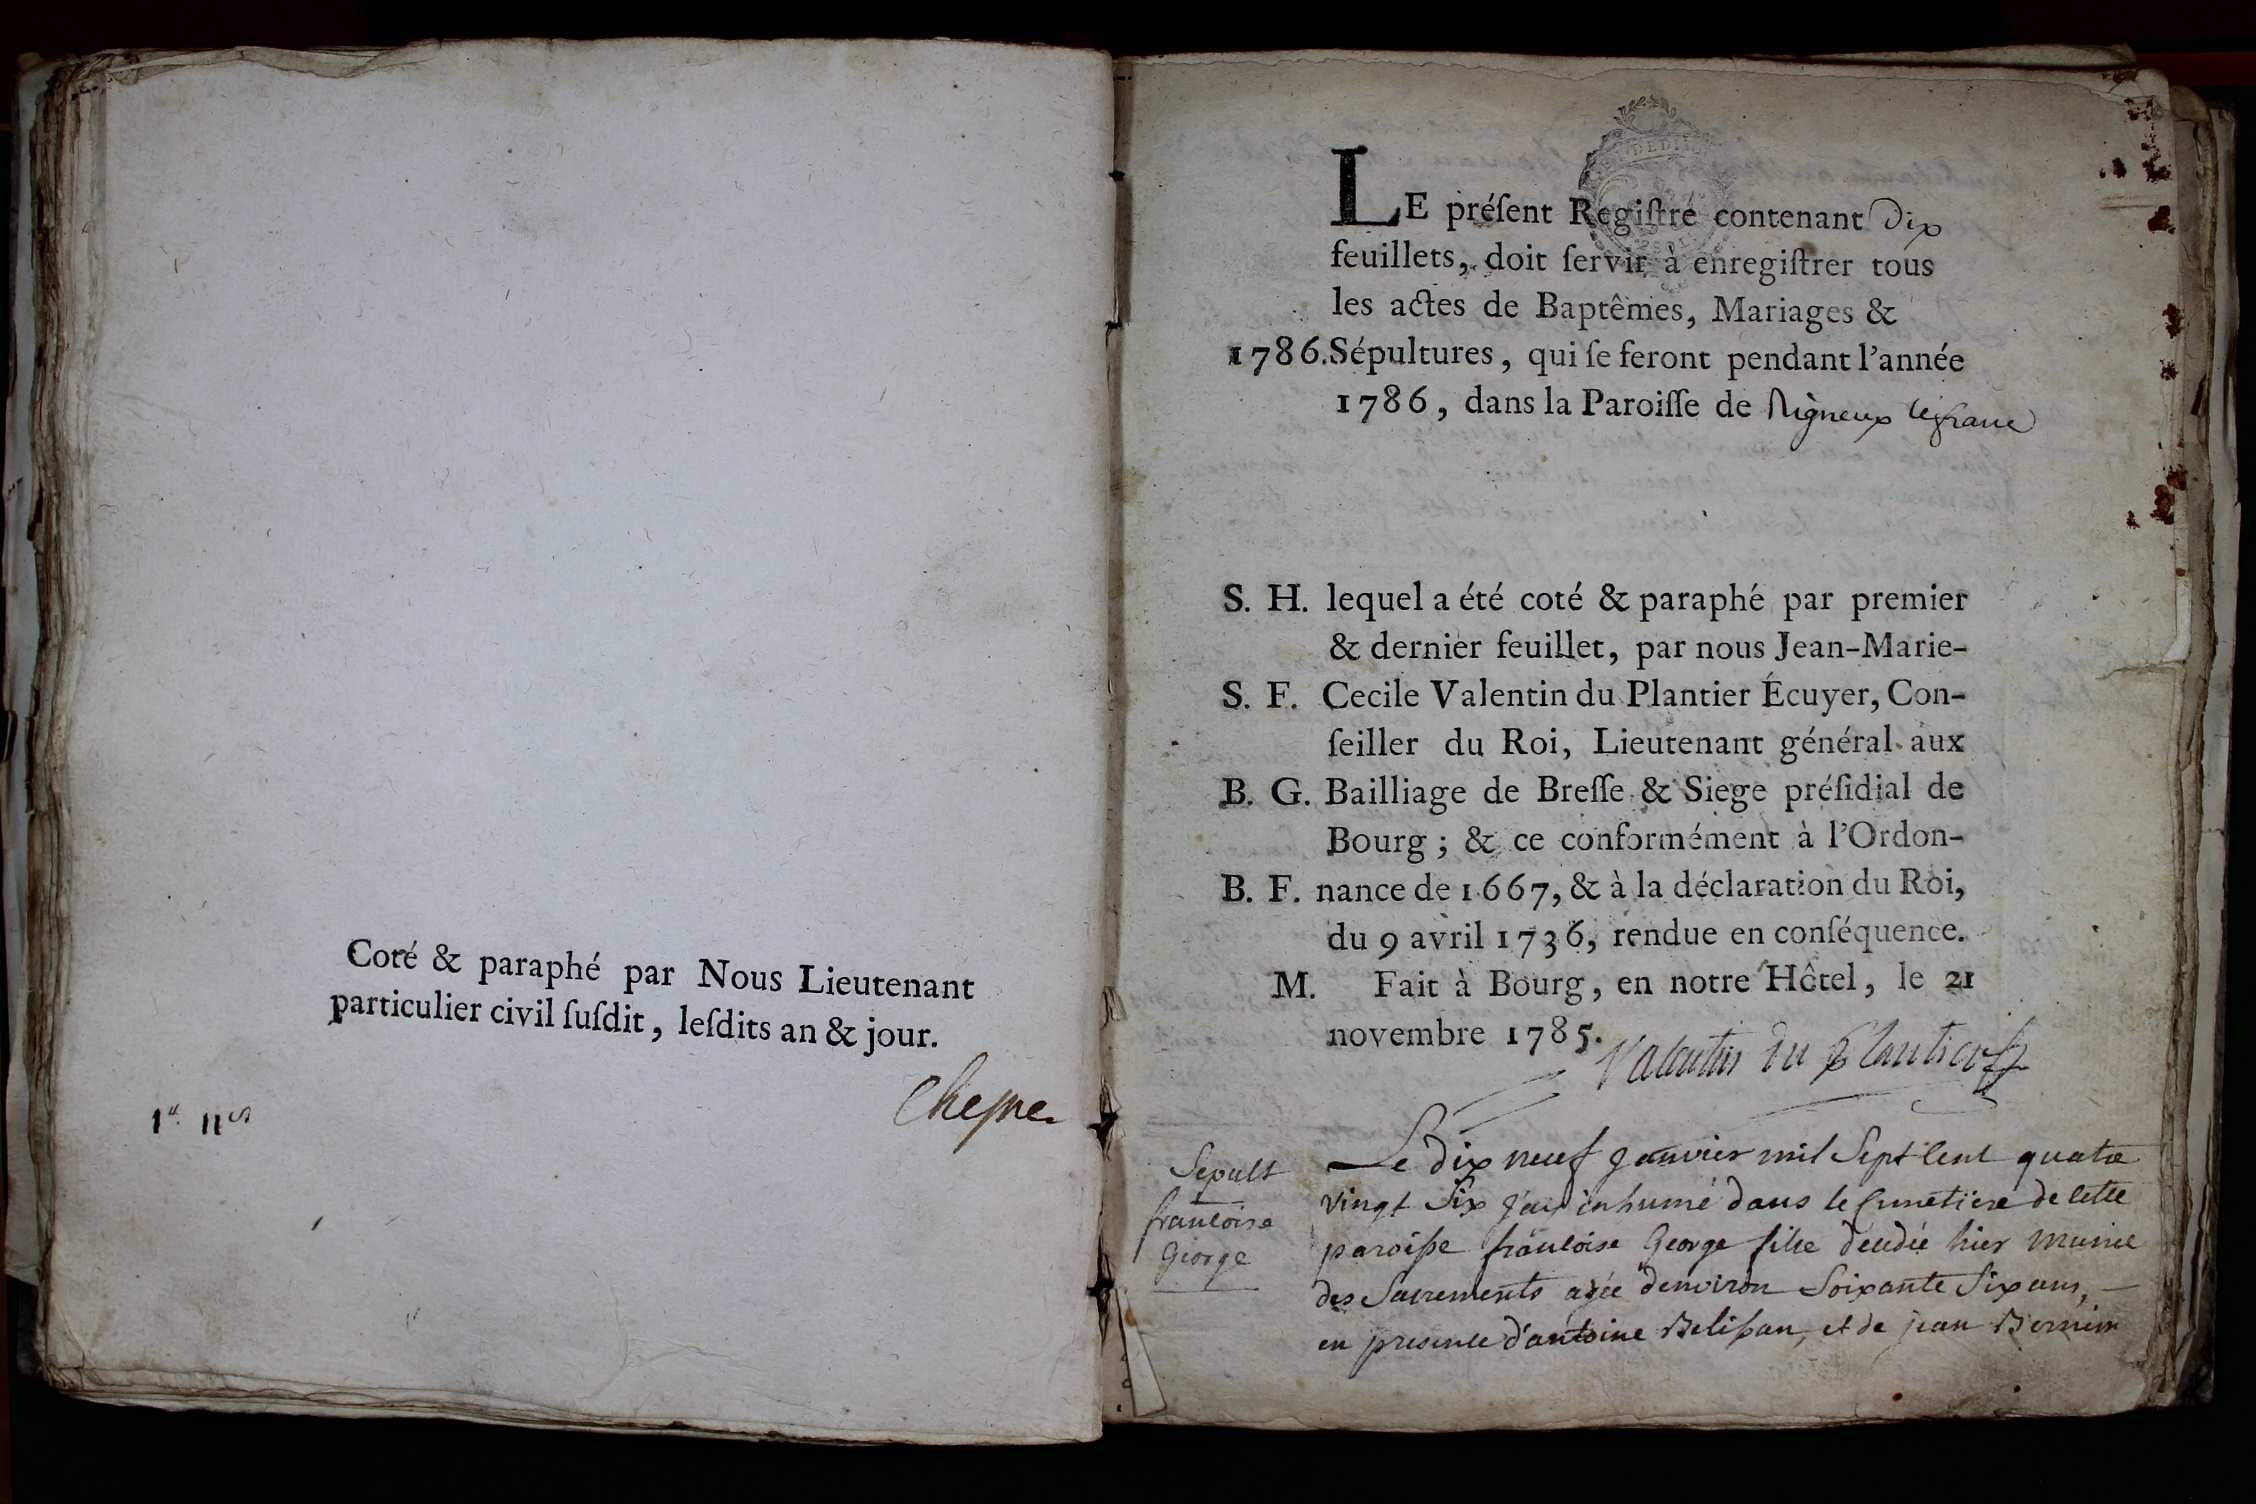 Coté & paraphé par Nous Lieutenant
particulier civil ſuſdit, leſdits an & jour.
LE préſent Regiſtre contenant dix
feuillets, doit ſervir à enregiſtrer tous
les actes de Baptêmes, Mariages &
1786. Sépultures, qui ſe feront pendant l'année
1786, dans la Paroiſſe de Rigneux lefranc
S. H. lequel a été coté & paraphé par premier
& dernier feuillet, par nous Jean-Marie-
S. F. Cecile Valentin du Plantier Écuyer, Con-
ſeiller du Roi, Lieutenant général aux
B. G. Bailliage de Breſſe & Siege préſidial de
Bourg ; & ce conformément à l'Ordon-
B. F. nance de 1667, & à la déclaration du Roi,
du 9 avril 1736, rendue en conſéquence.
M. Fait à Bourg, en notre Hôtel, le 21
novembre 1785.
Valentin du Plantier
Sepult
francoise
George
Le dix neuf janvier mil Sept Cent quatre
vingt Six j'ay inhumé dans le Cimetiere de cette
paroisse francoise George fille décedée hier munie
des Sacrements agée d'environ Soixante Six ans,
en presence d'antoine Belissan, et de jean Bernin